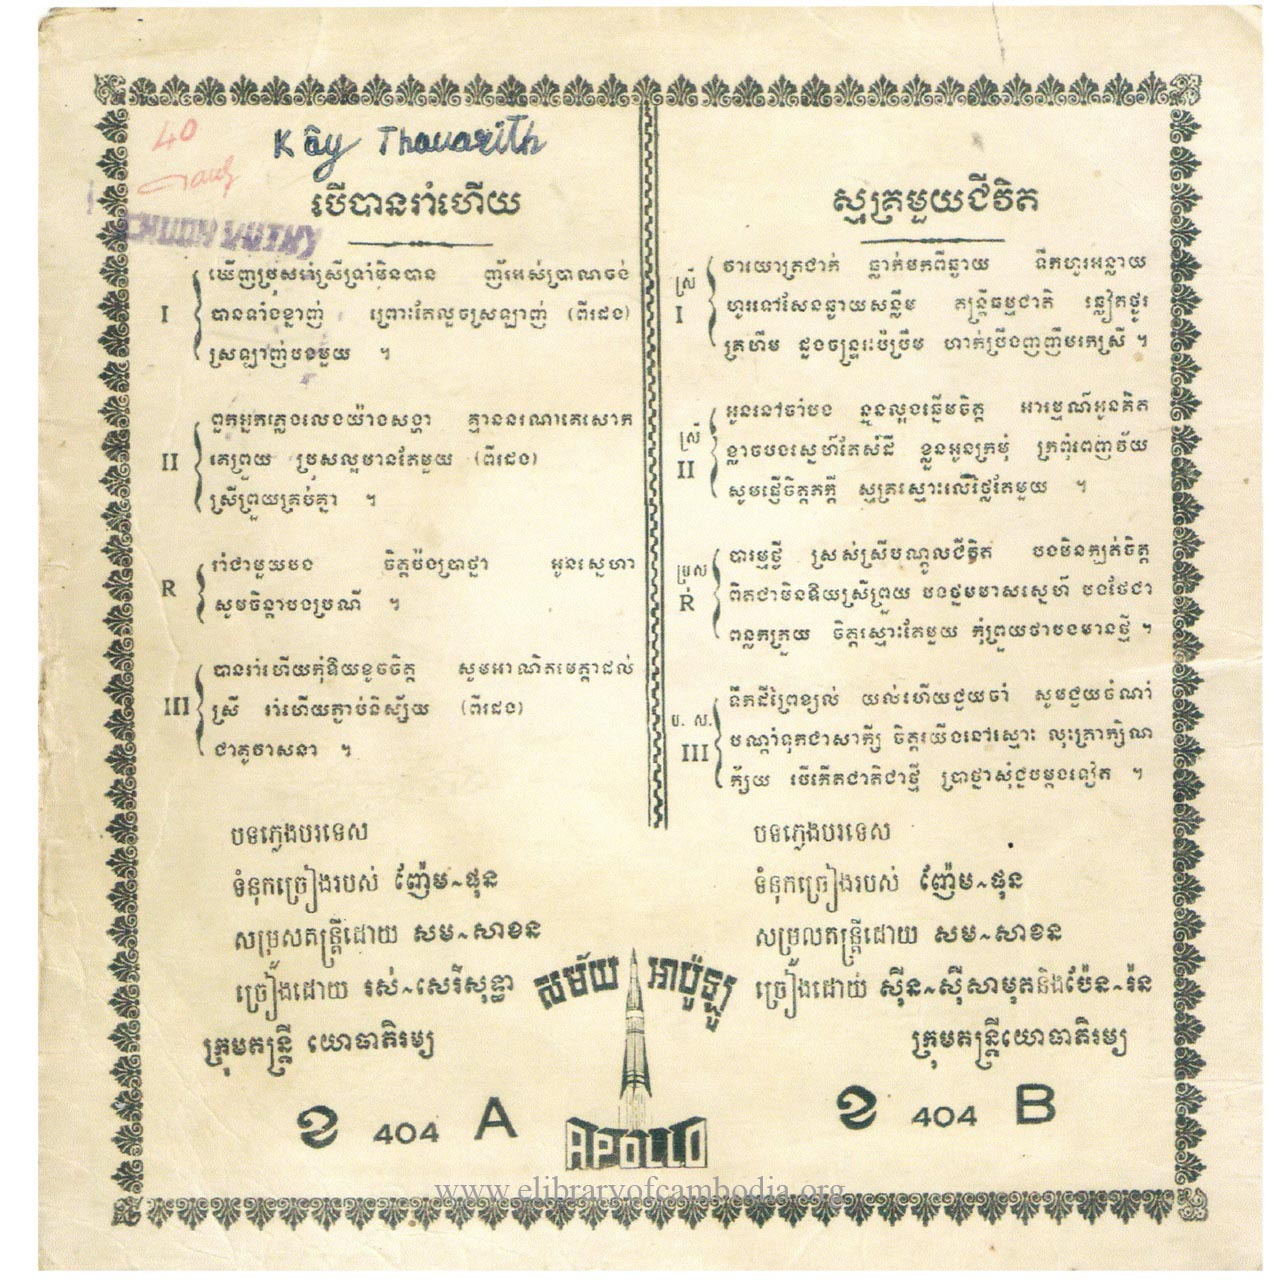 40
Kây Thavarith
CHUON VUTHY
បើបានរាំហើយ
I
ឃើញប្រុសអស់ស្រីទ្រាំមិនបាន ញ័រអស់ប្រាណចង់
បានទាំងខ្នាញ់ ព្រោះតែលួចស្រឡាញ់ (ពីរដង)
ស្រឡាញ់បងមួយ ។
II
ពួកអ្នកភ្លេងលេងយ៉ាងសង្ហា គ្មាននរណាគេសោក
គេព្រួយ ប្រុសល្អមានតែមួយ (ពីរដង)
ស្រីព្រួយគ្រប់គ្នា ។
R
រាំជាមួយបង ចិត្តប៉ងប្រាថ្នា អូនស្នេហា
សូមចិន្តាបងប្រណី ។
III
បានរាំហើយកុំឱយខូចចិត្ត សូមអាណិតមេត្តាដល់
ស្រី រាំហើយភ្ជាប់និស្ស័យ (ពីរដង)
ជាគូវាសនា ។
បទភ្លេងបរទេស
ទំនុកច្រៀងរបស់ ញ៉ែម~ផុន
សម្រួលតន្ត្រីដោយ សម~សាខន
ច្រៀងដោយ រស់~សេរីសុទ្ធា
ក្រុមតន្ត្រី យោធាភិរម្យ
ខ 404 A
ស្មគ្រមួយជីវិត
ស្រី
I
វាយោត្រជាក់ ធ្លាក់មកពីឆ្ងាយ ទឹកហូរអន្លាយ
ហូរទៅសែនឆ្ងាយសន្លឹម តន្ត្រីធម្មជាតិ ឆ្លៀតថ្ងូរ
គ្រហឹម ដួងចន្ទ្ររះប៉ប្រឹម ហាក់ប្រឹងញញឹមរកស្រី ។
ស្រី
II
អូននៅចាំបង ន្ទួនល្អងឆ្នើមចិត្ត អារម្មណ៍អូនគិត
ខ្លាចបងស្នេហ៍តែសំដី ខ្លួនអូនក្រមុំ ក្រពុំពេញវ័យ
សូមផ្ញើចិត្តភក្តី ស្មគ្រស្មោះលើថ្លៃតែមួយ ។
ប្រុស
R
បារម្ភថ្វី ស្រស់ស្រីបណ្តូលជីវិត បងមិនក្បត់ចិត្ត
ពិតជាមិនឱយស្រីព្រួយ បងថ្នមមាសស្នេហ៍ បងថែជា
ពន្លកត្រួយ ចិត្តស្មោះតែមួយ កុំព្រួយថាបងមានថ្មី ។
ប. ស.
III
ទឹកដីព្រៃខ្យល់ យល់ហើយជួយចាំ សូមជួយចំណាំ
បណ្តាំទុកជាសាក្សី ចិត្តយើងនៅស្មោះ លុះត្រាក្សិណ
ក្ស័យ បើកើតជាតិជាថ្មី ប្រាថ្នាសុំជួបម្តងទៀត ។
បទភ្លេងបរទេស
ទំនុកច្រៀងរបស់ ញ៉ែម~ផុន
សម្រួលតន្ត្រីដោយ សម~សាខន
ច្រៀងដោយ ស៊ីន~ស៊ីសាមុតនិងប៉ែន~រ៉ន
ក្រុមតន្ត្រីយោធាភិរម្យ
ខ 404 B
សម័យ អាប៉ូឡូ
APOLLO
www.elibraryofcambodia.org